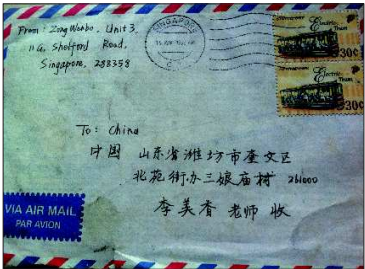 From: Zong Wenbo, Unit 3,
11G, Shelford Road,
Singapore, 288358
SINGAPORE
Singapore Electric Tram 30¢
Singapore Electric Tram 30¢
To: China
中国 山东省潍坊市奎文区
北苑街办三娘庙村 261000
李美香 老师 收
VIA AIR MAIL
PAR AVION